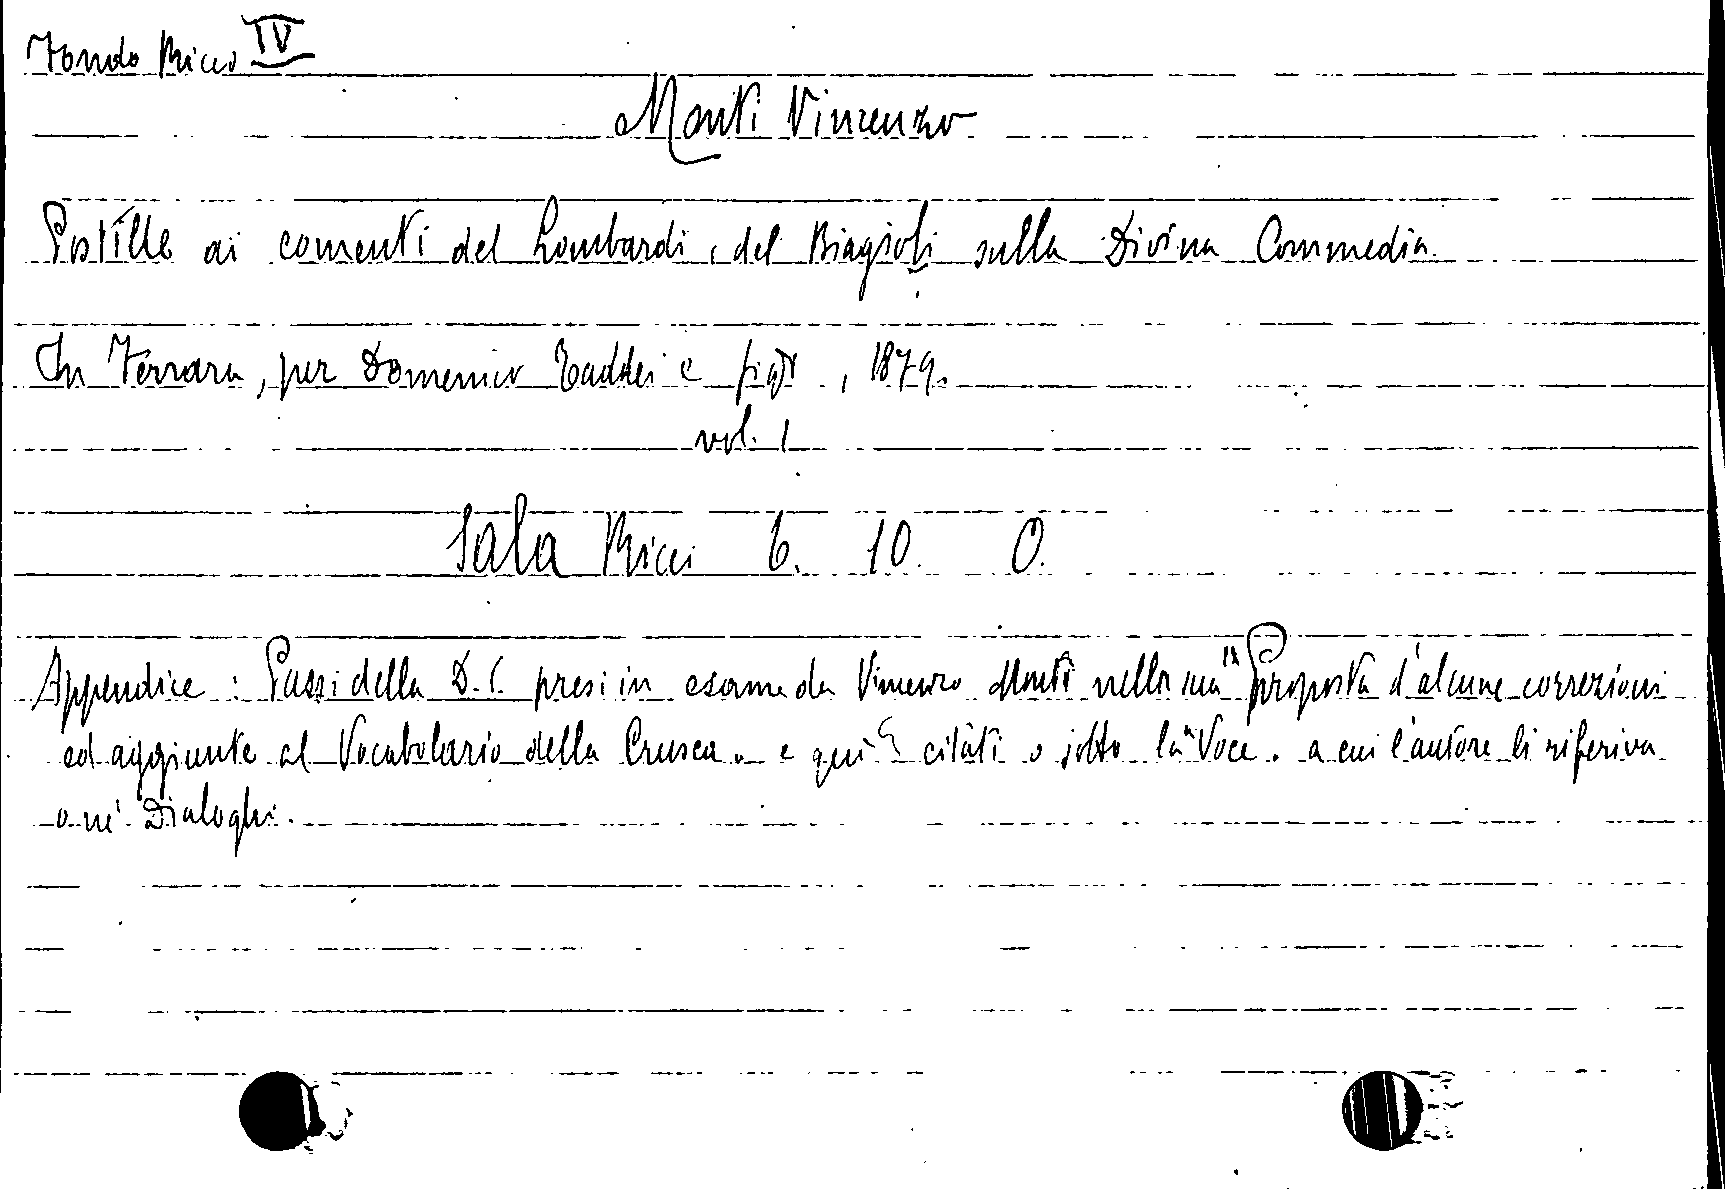 Fondo Ricci IV
Monti Vincenzo
Postille ai comenti del Lombardi, del Biagioli sulla Divina Commedia.
In Ferrara, per Domenico Taddei e figli, 1879.
vol. 1
Sala Ricci 6. 10. O.
Appendice: Passi della D. C. presi in esame da Vincenzo Monti nella sua "Proposta d'alcune correzioni
ed aggiunte al Vocabolario della Crusca. e qui citati o sotto la Voce. a cui l'autore li riferiva
o ne' Dialoghi.